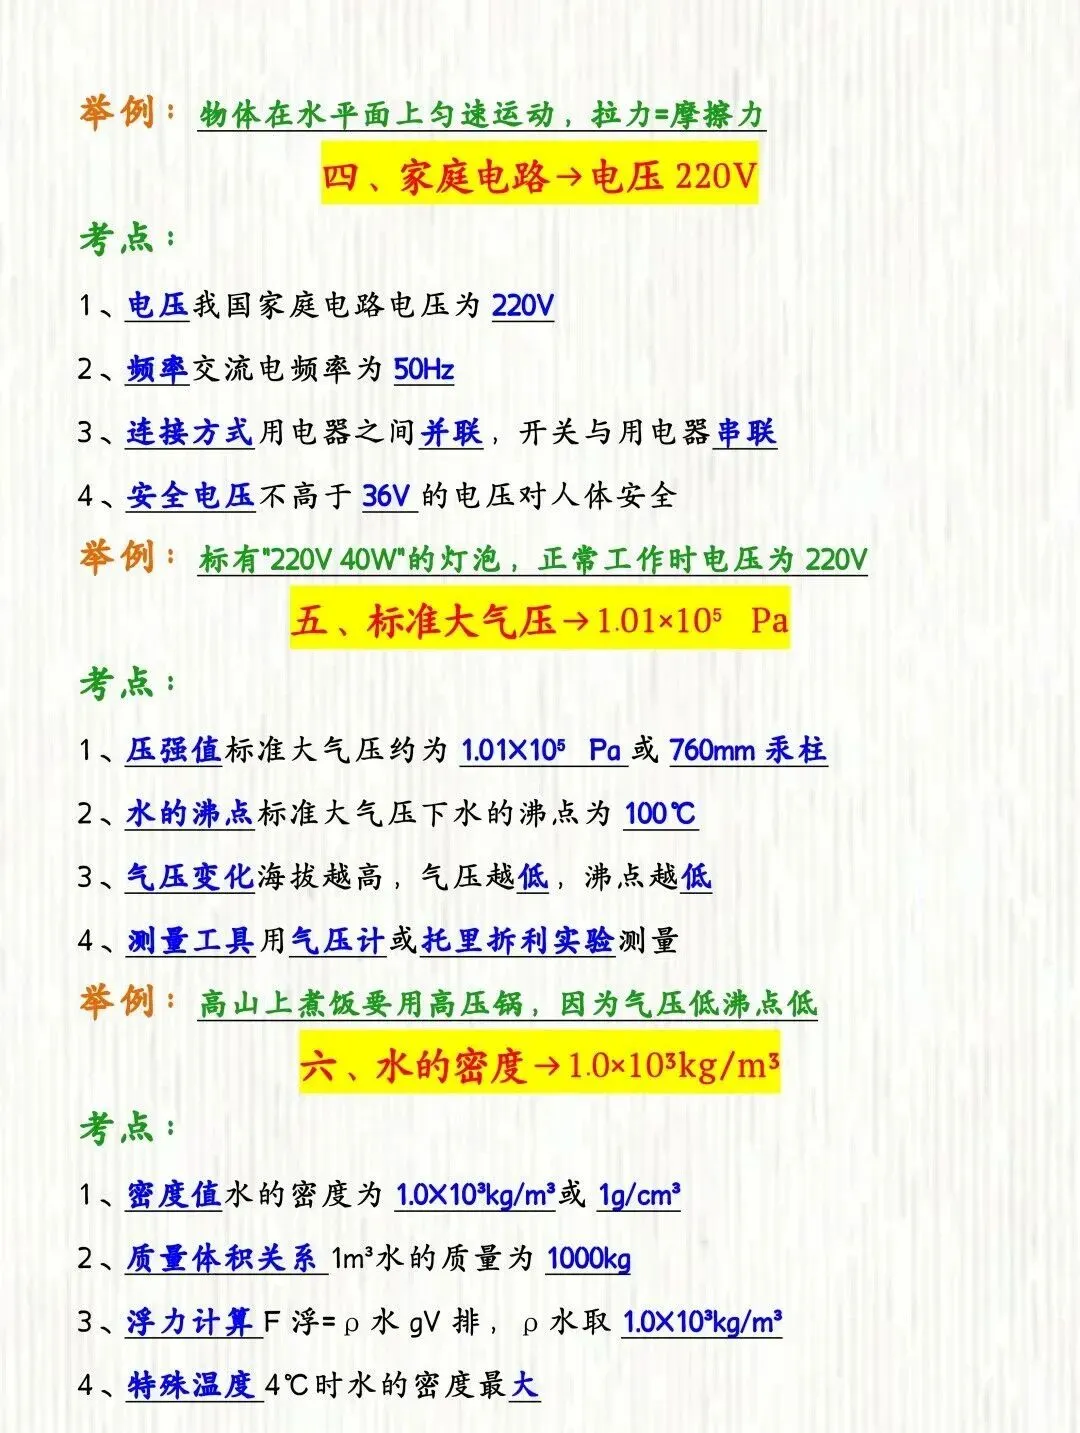 举例：物体在水平面上匀速运动，拉力=摩擦力
四、家庭电路→电压 220V
考点：
1、电压我国家庭电路电压为 220V
2、频率交流电频率为 50Hz
3、连接方式用电器之间并联，开关与用电器串联
4、安全电压不高于 36V 的电压对人体安全
举例：标有"220V 40W"的灯泡，正常工作时电压为 220V
五、标准大气压→1.01×10⁵ Pa
考点：
1、压强值标准大气压约为 1.01×10⁵ Pa 或 760mm 汞柱
2、水的沸点标准大气压下水的沸点为 100℃
3、气压变化海拔越高，气压越低，沸点越低
4、测量工具用气压计或托里拆利实验测量
举例：高山上煮饭要用高压锅，因为气压低沸点低
六、水的密度→1.0×10³kg/m³
考点：
1、密度值水的密度为 1.0×10³kg/m³或 1g/cm³
2、质量体积关系 1m³水的质量为 1000kg
3、浮力计算 F 浮=ρ水 gV 排，ρ水取 1.0×10³kg/m³
4、特殊温度 4℃时水的密度最大